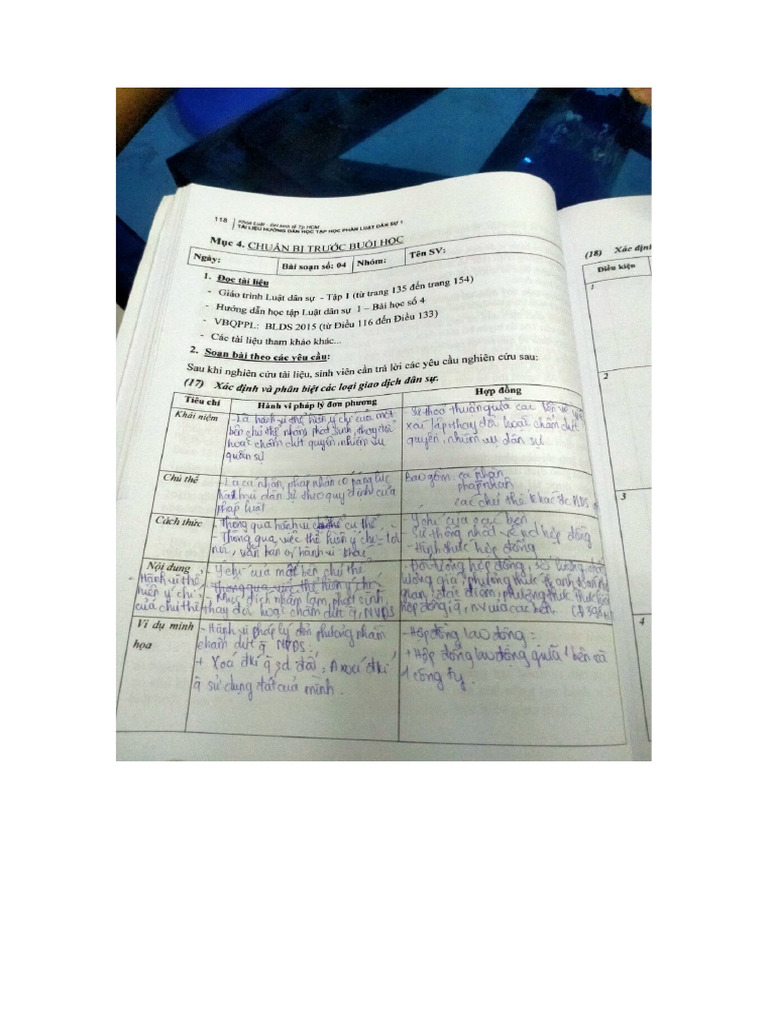 118
Khoa Luật - ĐH kinh tế Tp.HCM
TÀI LIỆU HƯỚNG DẪN HỌC TẬP HỌC PHẦN LUẬT DÂN SỰ 1
Mục 4. CHUẨN BỊ TRƯỚC BUỔI HỌC
Ngày: Bài soạn số: 04 Nhóm: Tên SV:
1. Đọc tài liệu
- Giáo trình Luật dân sự - Tập 1 (từ trang 135 đến trang 154)
- Hướng dẫn học tập Luật dân sự 1 – Bài học số 4
- VBQPPL: BLDS 2015 (từ Điều 116 đến Điều 133)
- Các tài liệu tham khảo khác...
2. Soạn bài theo các yêu cầu:
Sau khi nghiên cứu tài liệu, sinh viên cần trả lời các yêu cầu nghiên cứu sau:
(17) Xác định và phân biệt các loại giao dịch dân sự.
Tiêu chí Hành vi pháp lý đơn phương Hợp đồng
Khái niệm
- Là hành vi thể hiện ý chí của một
bên chủ thể nhằm phát sinh, thay đổi
hoặc chấm dứt quyền, nhiệm vụ
dân sự
- Sự thoả thuận giữa các bên về việc
xác lập, thay đổi hoặc chấm dứt
quyền, nhiệm vụ dân sự
Chủ thể
- Là cá nhân, pháp nhân có năng lực
hành vi dân sự theo quy định của
pháp luật
Bao gồm: cá nhân
pháp nhân
các chủ thể khác
Cách thức
- Thông qua hành vi cụ thể
- Thông qua việc thể hiện ý chí = lời
nói, văn bản or hành vi khác
- Ý chí của các bên
- Sự thống nhất về nd hợp đồng
- Hình thức hợp đồng
Nội dung
- Hành vi thể
hiện ý chí
của chủ thể
- Ý chí của một bên chủ thể
- Thông qua việc thể hiện ý chí
- Mục đích nhằm làm phát sinh,
thay đổi hoặc chấm dứt q, NVDS
- Đối tượng hợp đồng, số lượng, chất
lượng, giá, phương thức thanh toán, thời
gian, địa điểm, phương thức thực hiện
hợp đồng, q, nv của các bên.
Ví dụ minh
họa
- Hành vi pháp lý đơn phương nhằm
chấm dứt q NVDS:
+ Xoá đkí q sd đất, A xoá đkí
q sử dụng đất của mình.
- Hợp đồng lao động:
+ Hợp đồng lao động giữa 1 bên và
1 công ty.
(18) Xác định
Điều kiện
1
2
3
4